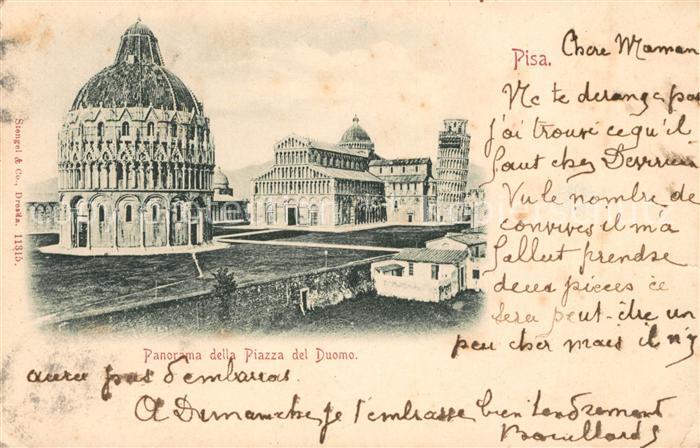 Pisa.
Chere Maman
Ne te derange pas
j'ai trouvé ce qu'il
faut chez
Vu le nombre de
convives il m'a
fallut prendre
deux pieces ce
sera peut-être un
peu cher mais il n'y
aura pas d'embarras.
A Dimanche, je t'embrasse bien tendrement
Panorama della Piazza del Duomo.
Stengel & Co., Dresda. 11315.